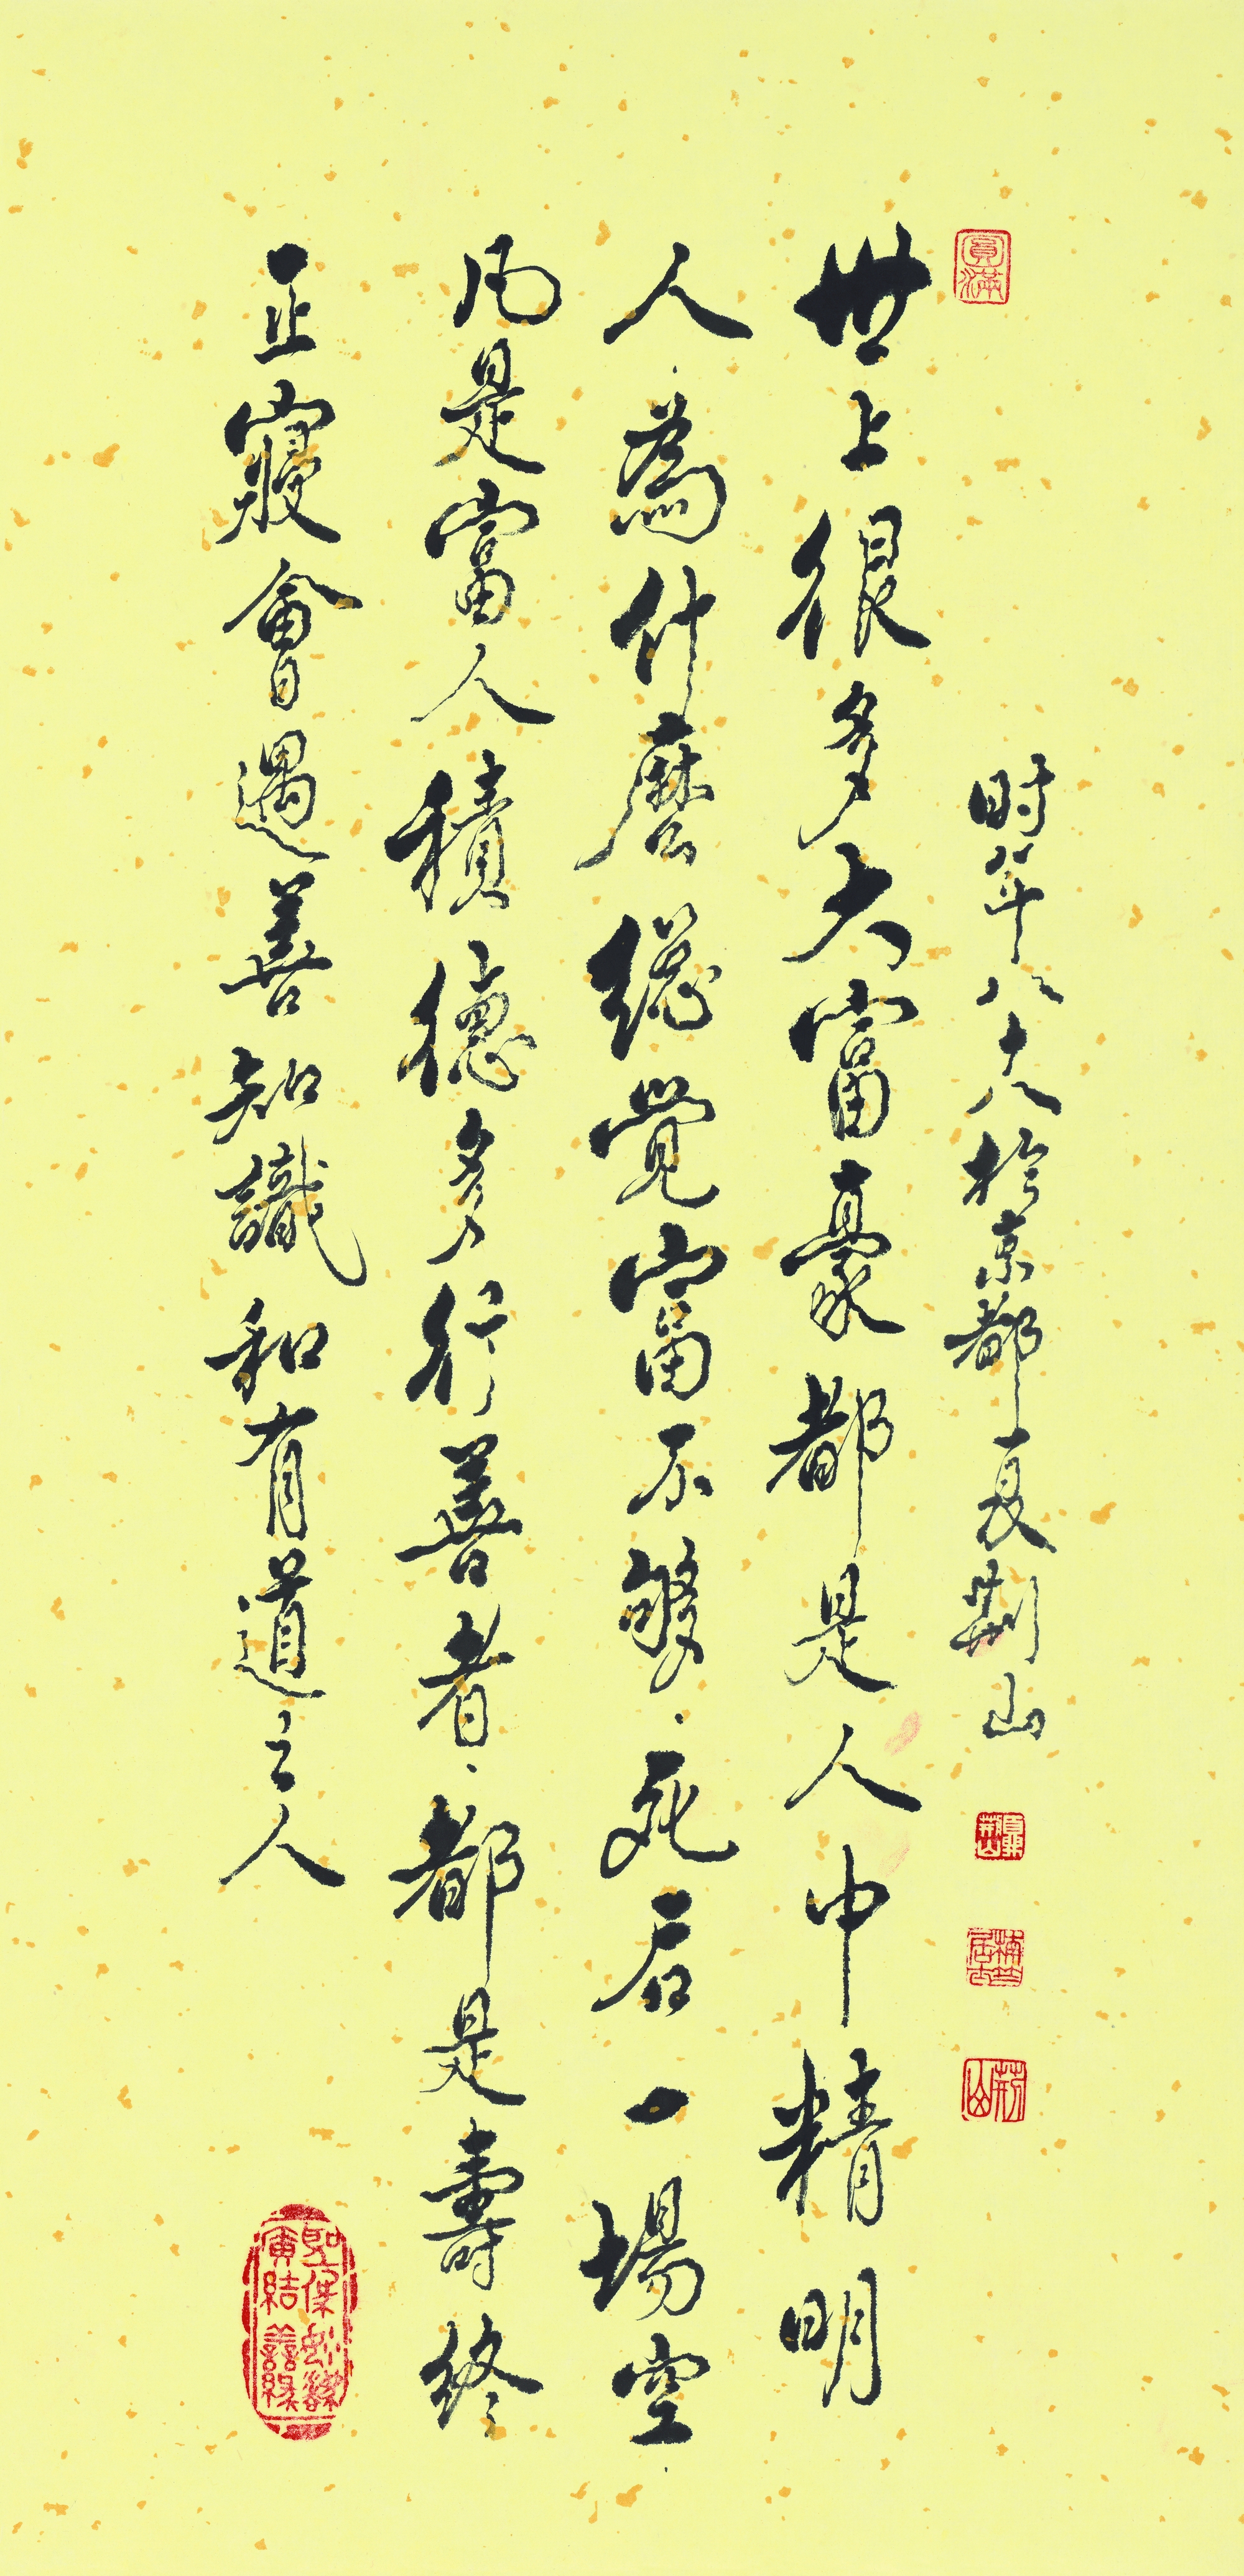 圓滿
时年八十八於京都夏荆山
夏荆山
荆山
世上很多大富豪都是人中精明
人.為什麽總覺富不够.死后一場空.
凡是富人積德多行善者.都是壽終
正寢會遇善知識和有道之人
廣結善緣